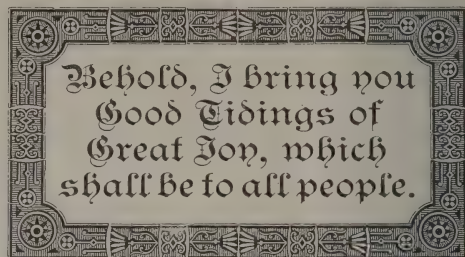 Behold, I bring you
Good Tidings of
Great Joy, which
shall be to all people.